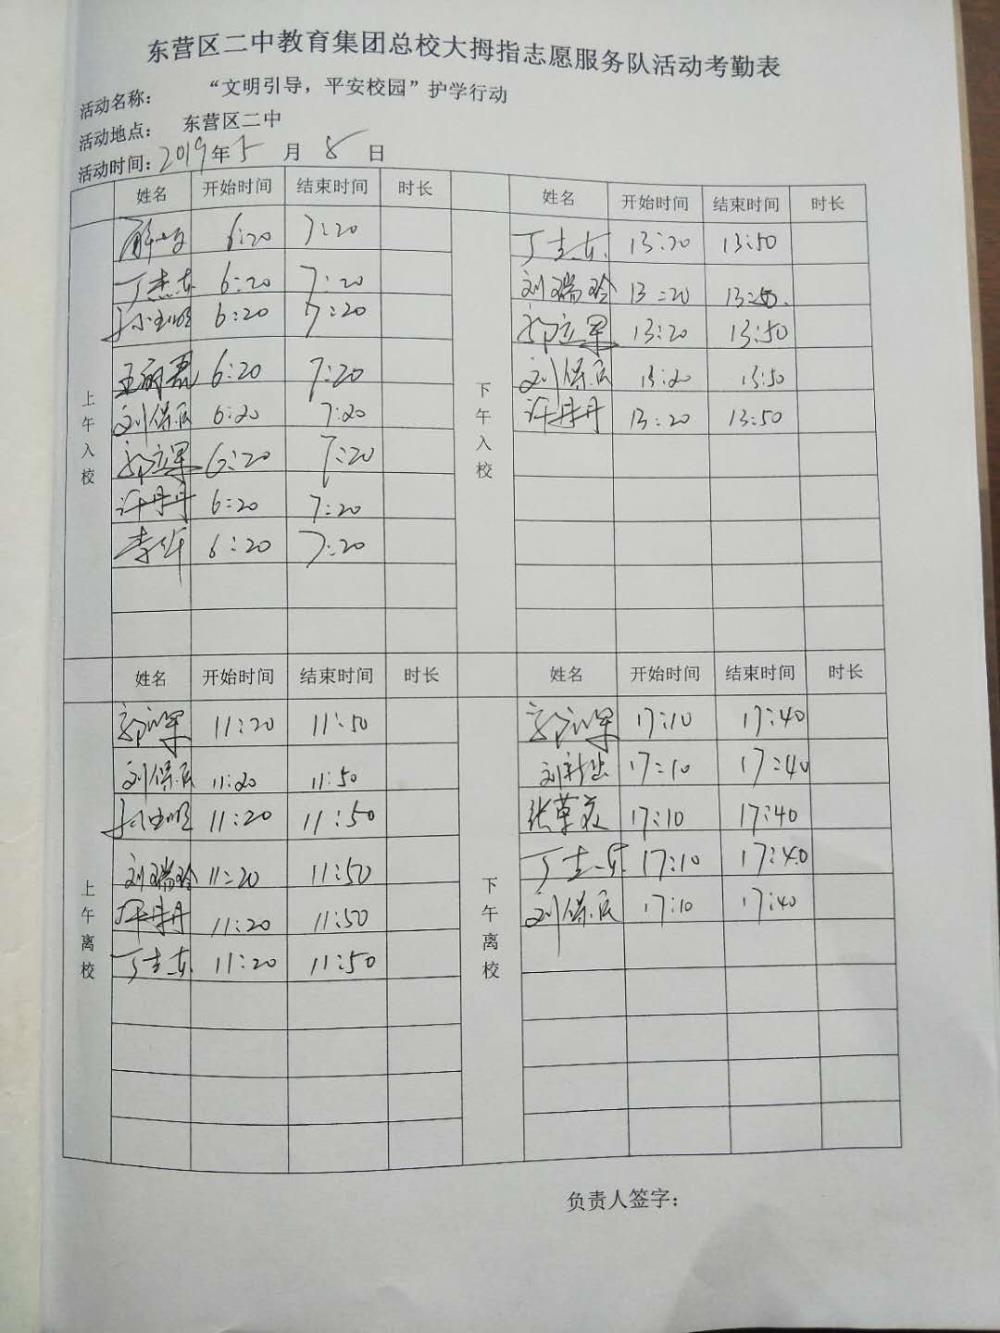 东营区二中教育集团总校大拇指志愿服务队活动考勤表
活动名称: “文明引导，平安校园”护学行动
活动地点: 东营区二中
活动时间: 2019年5月8日
姓名 开始时间 结束时间 时长 姓名 开始时间 结束时间 时长
上午入校
6:20 7:20
丁志东 6:20 7:20
6:20 7:20
6:20 7:20
刘保民 6:20 7:20
郭立军 6:20 7:20
许丹丹 6:20 7:20
6:20 7:20
下午入校
丁志东 13:20 13:50
刘瑞玲 13:20 13:50
郭立军 13:20 13:50
刘保民 13:20 13:50
许丹丹 13:20 13:50
姓名 开始时间 结束时间 时长 姓名 开始时间 结束时间 时长
上午离校
郭立军 11:20 11:50
刘保民 11:20 11:50
11:20 11:50
刘瑞玲 11:20 11:50
许丹丹 11:20 11:50
丁志东 11:20 11:50
下午离校
郭立军 17:10 17:40
刘 17:10 17:40
张 17:10 17:40
丁志东 17:10 17:40
刘保民 17:10 17:40
负责人签字: